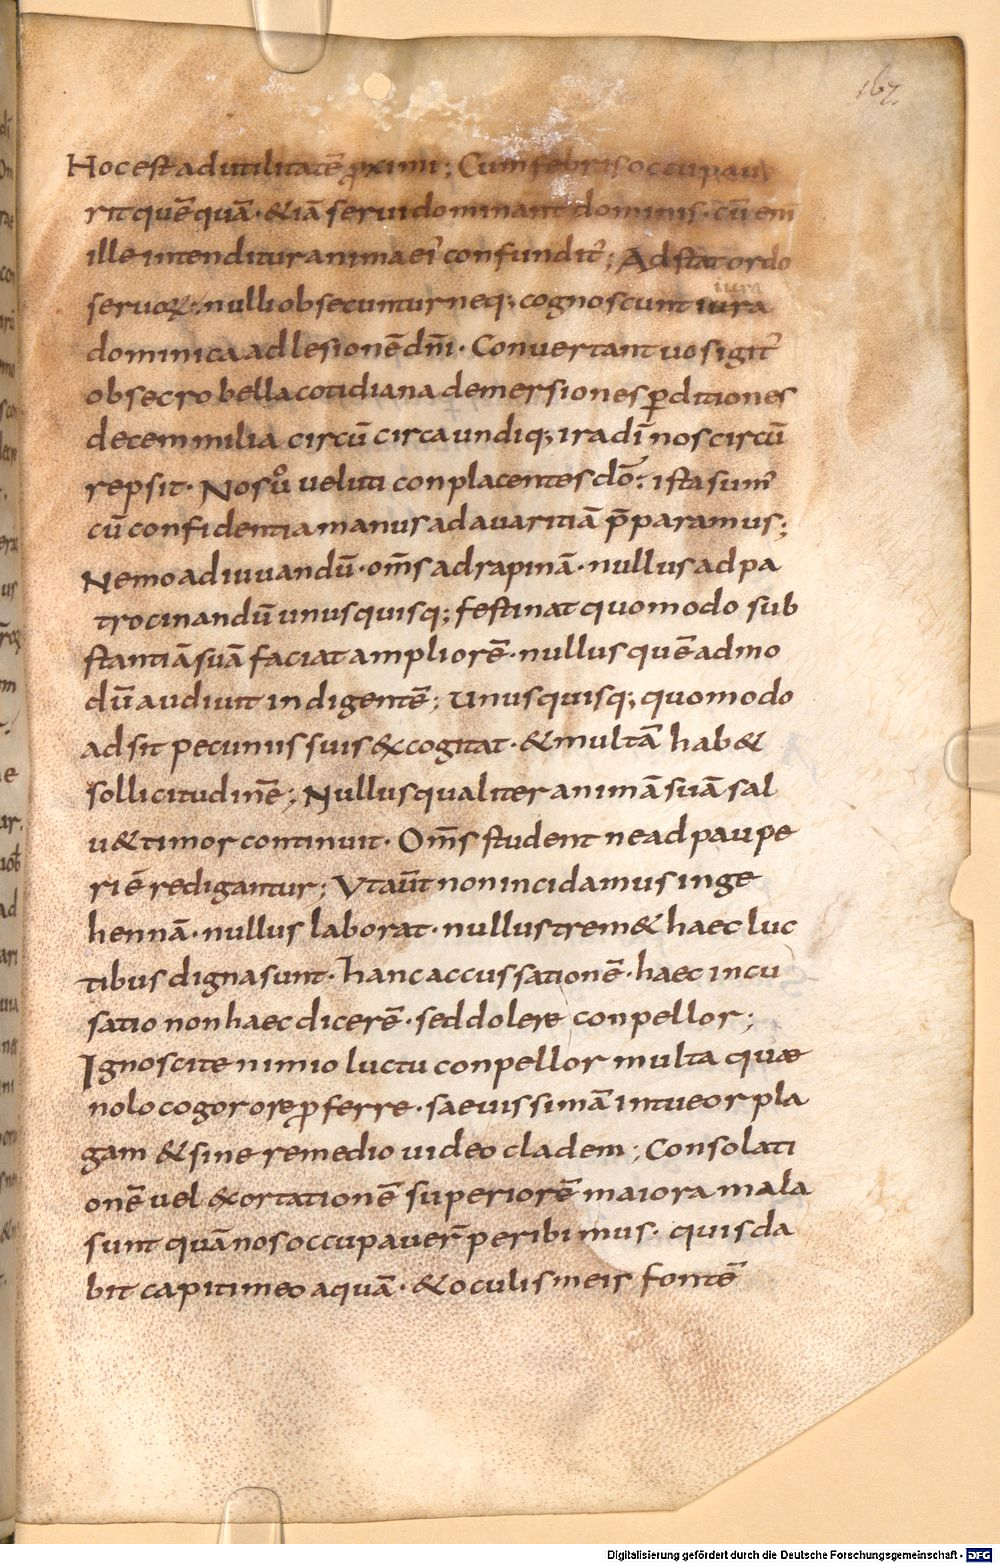 167.
Hoc est ad utilitatē ꝓximi; Cum febris occupaue
rit quēquā · & iā serui dominant dominis · cū eni̅
ille intenditur anima ei᾽ confundit᾽; Adstat ordo
seruoꝝ · nulli obsecuntur neq; cognoscunt iura
iura
dominica ad lesionē dn̄i · Conuertant uos igit᾽
obsecro bella cotidiana demersiones ꝑditiones
decem milia circū circa undiq; ira dī nos circū
repsit · Nos uͦ ueluti conplacentes dō; ista sum᾽
cū confidentia manus ad auaritiā p̄paramus;
Nemo adiuuandū · om̄s ad rapinā · nullus ad pa
trocinandū unusquisq; festinat quomodo sub
stantiā suā faciat ampliorē · nullus quēadmo
dū audiuit indigentē; Unusquisq; quomodo
adsit pecuniis suis excogitat · & multā hab&
sollicitudinē; Nullus qualiter animā suā sal
u& timor continuit · Om̄s student ne ad paupe
riē redigantur; Ut aūt non incidamus in ge
hennā · nullus laborat · nullus trem& haec luc
tibus digna sunt · hanc accussationē · haec incu
satio non haec dicerē · sed dolere conpellor;
Ignoscite nimio luctu conpellor multa quæ
nolo cogor ore ꝓferre · saeuissimā intueor pla
gam & sine remedio uideo cladem; Consolati
onē uel exortationē superiorē maiora mala
sunt quā nos occupauer̄ peribimus · quis da
bit capiti meo aquā · & oculis meis fontē
Digitalisierung gefördert durch die Deutsche Forschungsgemeinschaft - DFG